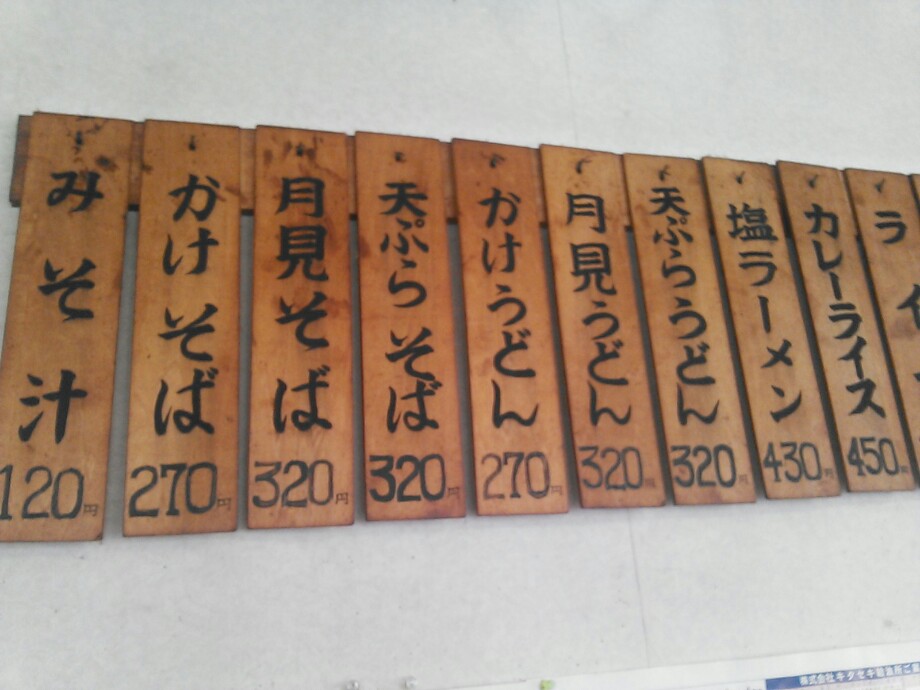 みそ汁
120円
かけそば
270円
月見そば
320円
天ぷらそば
320円
かけうどん
270円
月見うどん
320円
天ぷらうどん
320円
塩ラーメン
430円
カレーライス
450円
ライ